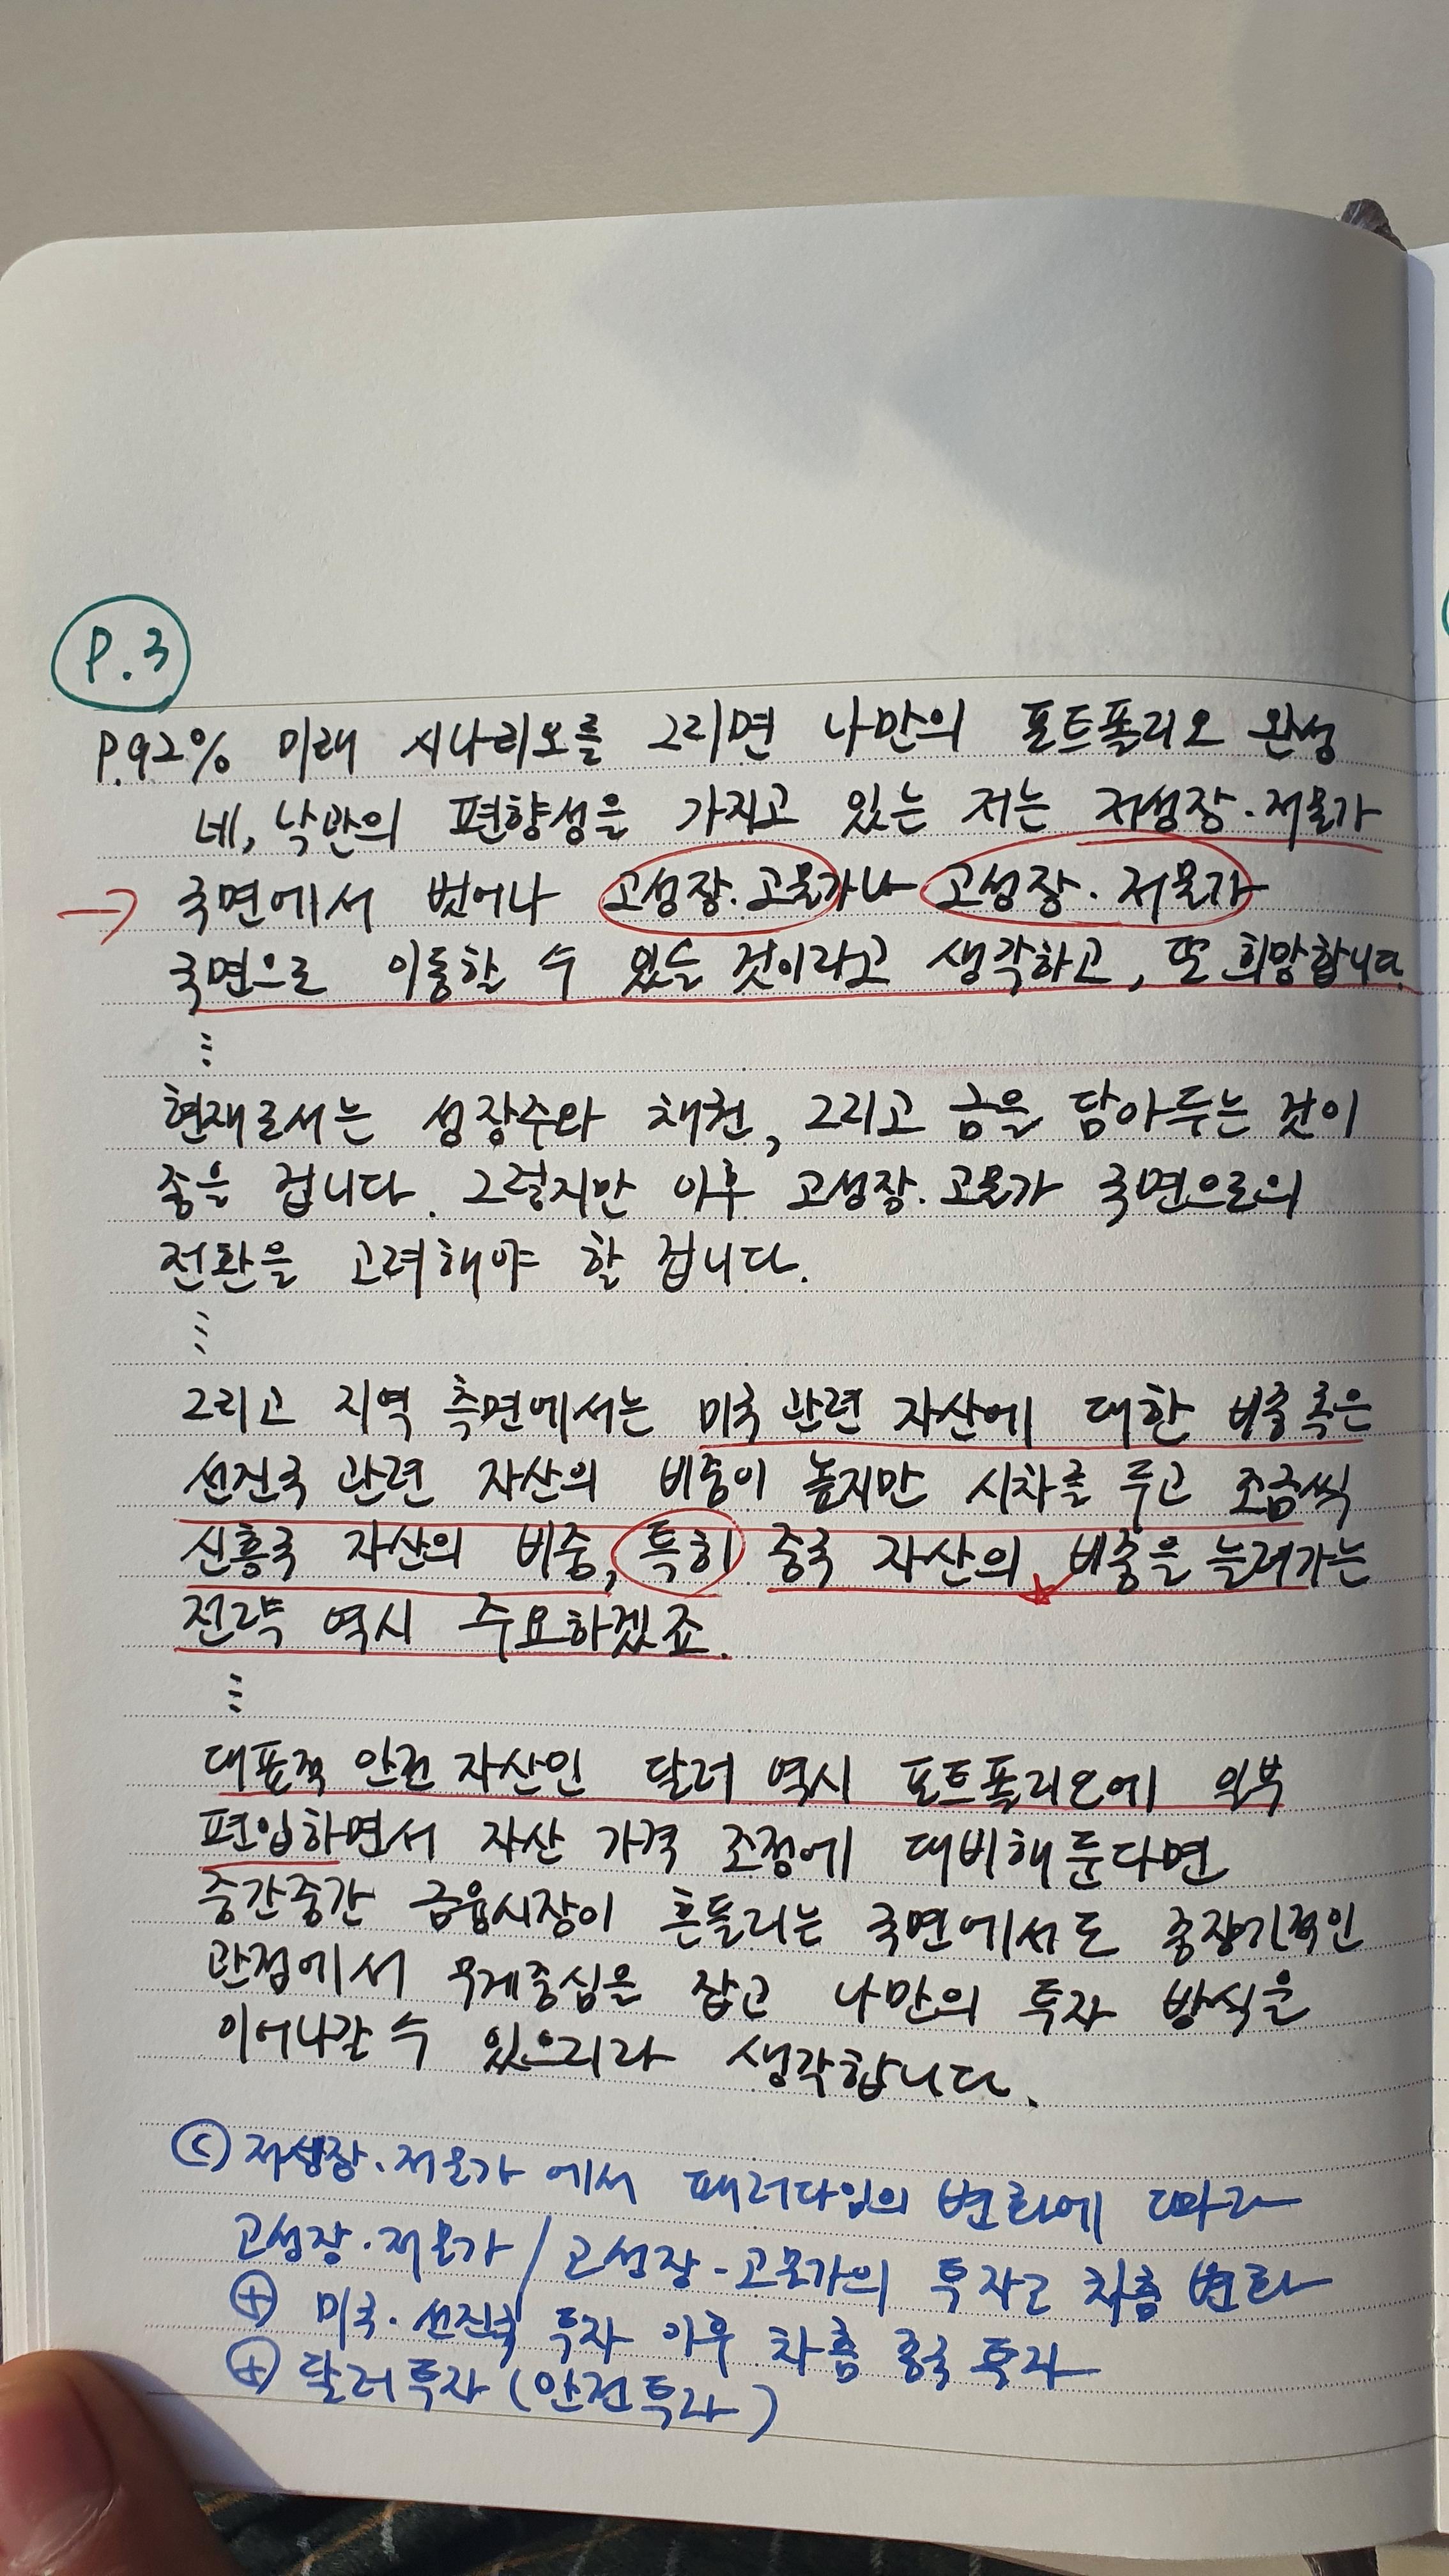 P.3
P.92% 미래 시나리오를 그리면 나만의 포트폴리오 완성
네, 낙관의 편향성을 가지고 있는 저는 저성장·저물가
→ 국면에서 벗어나 고성장·고물가나 고성장·저물가
국면으로 이동할 수 있을 것이라고 생각하고, 또 희망합니다.
⋮
현재로서는 성장주와 채권, 그리고 금을 담아두는 것이
좋을 겁니다. 그렇지만 이후 고성장·고물가 국면으로의
전환을 고려해야 할 겁니다.
⋮
그리고 지역 측면에서는 미국 관련 자산에 대한 비중 혹은
선진국 관련 자산의 비중이 높지만 시차를 두고 조금씩
신흥국 자산의 비중, 특히 중국 자산의 비중을 늘려가는
전략 역시 주요하겠죠.
⋮
대표적 안전 자산인 달러 역시 포트폴리오에 일부
편입하면서 자산 가격 조정에 대비해 둔다면
중간중간 금융시장이 흔들리는 국면에서도 중장기적인
관점에서 무게중심을 잡고 나만의 투자 방식을
이어나갈 수 있으리라 생각합니다.
ⓒ 저성장·저물가에서 패러다임의 변화에 따라
고성장·저물가 / 고성장-고물가의 투자로 차츰 변화
⊕ 미국·선진국 투자 이후 차츰 중국 투자
⊕ 달러투자 (안전투자)